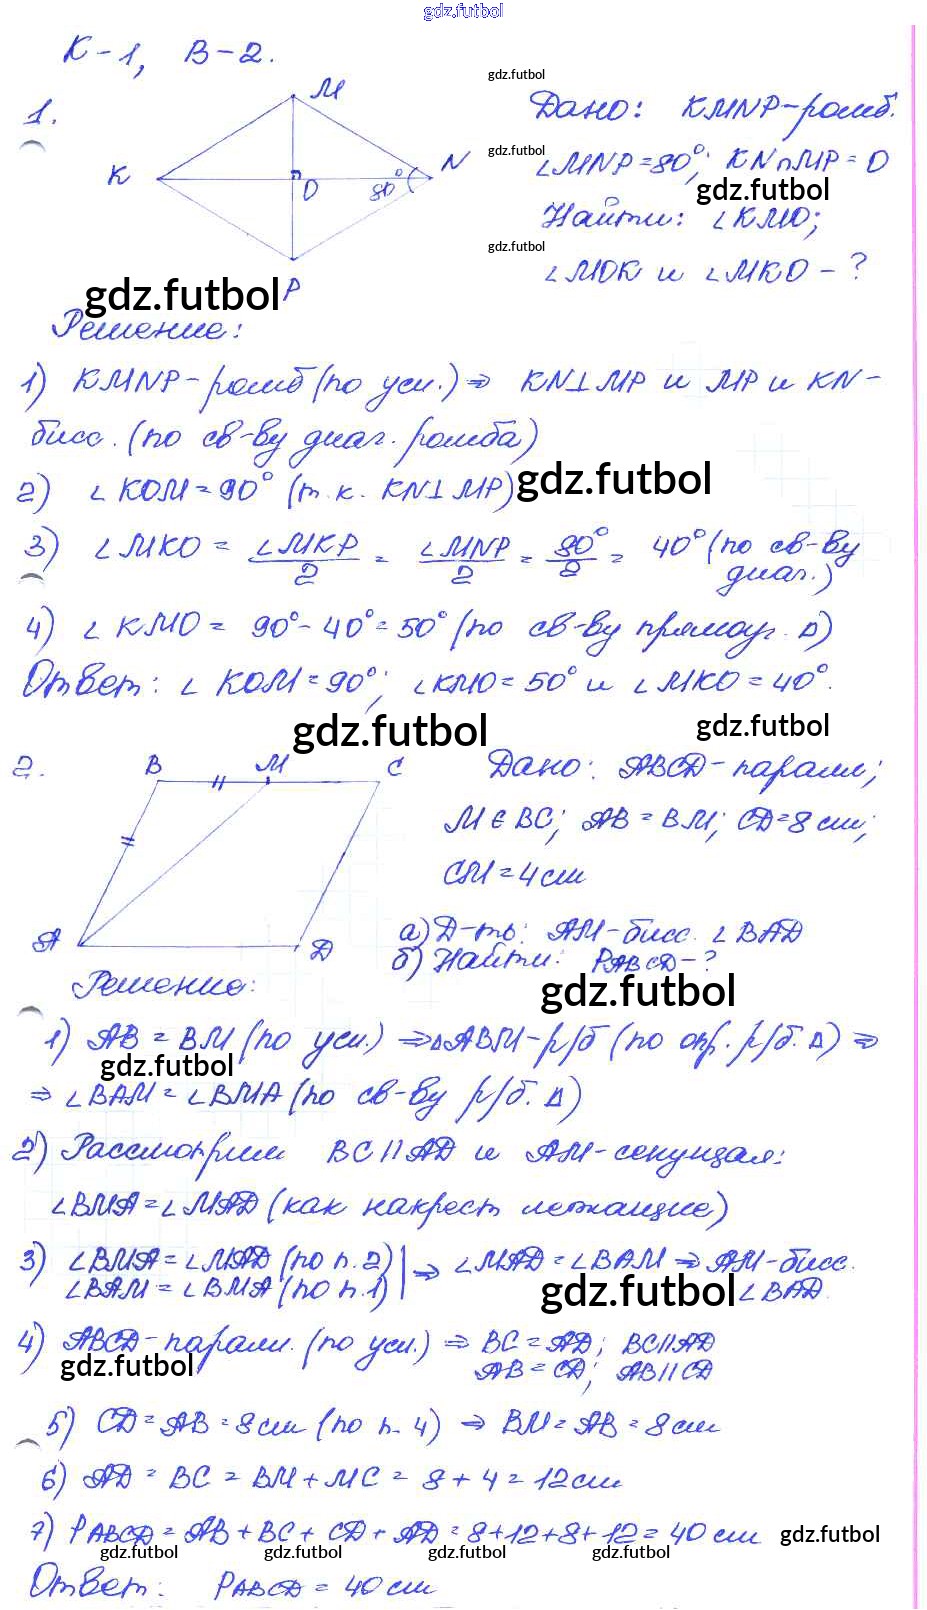 gdz.futbol
К-1, В-2.
gdz.futbol
1.
M
K
O
80°
N
P
Дано: KMNP-ромб.
gdz.futbol
∠MNP=80°; KN∩MP=O
gdz.futbol
Найти: ∠KMO;
gdz.futbol
∠MOK и ∠MKO-?
gdz.futbol
Решение:
1) KMNP-ромб (по усл.)⇒ KN⊥MP и MP и KN-
бисс. (по св-ву диаг. ромба)
2) ∠KOM=90° (т.к. KN⊥MP)
gdz.futbol
3) ∠MKO = ∠MKP/2 = ∠MNP/2 = 80°/2 = 40° (по св-ву
диаг.)
4) ∠KMO = 90°-40°=50° (по св-ву прямоуг. Δ)
Ответ: ∠KOM=90°; ∠KMO=50° и ∠MKO=40°.
gdz.futbol
gdz.futbol
2.
B
M
C
A
D
Дано: ABCD-паралл;
M∈BC; AB=BM; CD=8см;
CM=4см
а) Д-ть: AM-бисс. ∠BAD
б) Найти: PABCD-?
Решение:
gdz.futbol
1) AB=BM (по усл.) ⇒ΔABM-р/б (по опр. р/б. Δ) ⇒
gdz.futbol
⇒ ∠BAM=∠BMA (по св-ву р/б. Δ)
2) Рассмотрим BC||AD и AM-секущая:
∠BMA=∠MAD (как накрест лежащие)
3) ∠BMA=∠MAD (по п.2)
∠BAM=∠BMA (по п.1)
⇒ ∠MAD=∠BAM ⇒ AM-бисс.
gdz.futbol
∠BAD.
4) ABCD-паралл. (по усл.) ⇒ BC=AD; BC||AD
AB=CD; AB||CD
gdz.futbol
5) CD=AB=8см (по п. 4) ⇒ BM=AB=8см
6) AD=BC=BM+MC=8+4=12см
7) PABCD=AB+BC+CD+AD=8+12+8+12=40см
gdz.futbol
gdz.futbol
gdz.futbol
gdz.futbol
gdz.futbol
Ответ: PABCD=40см